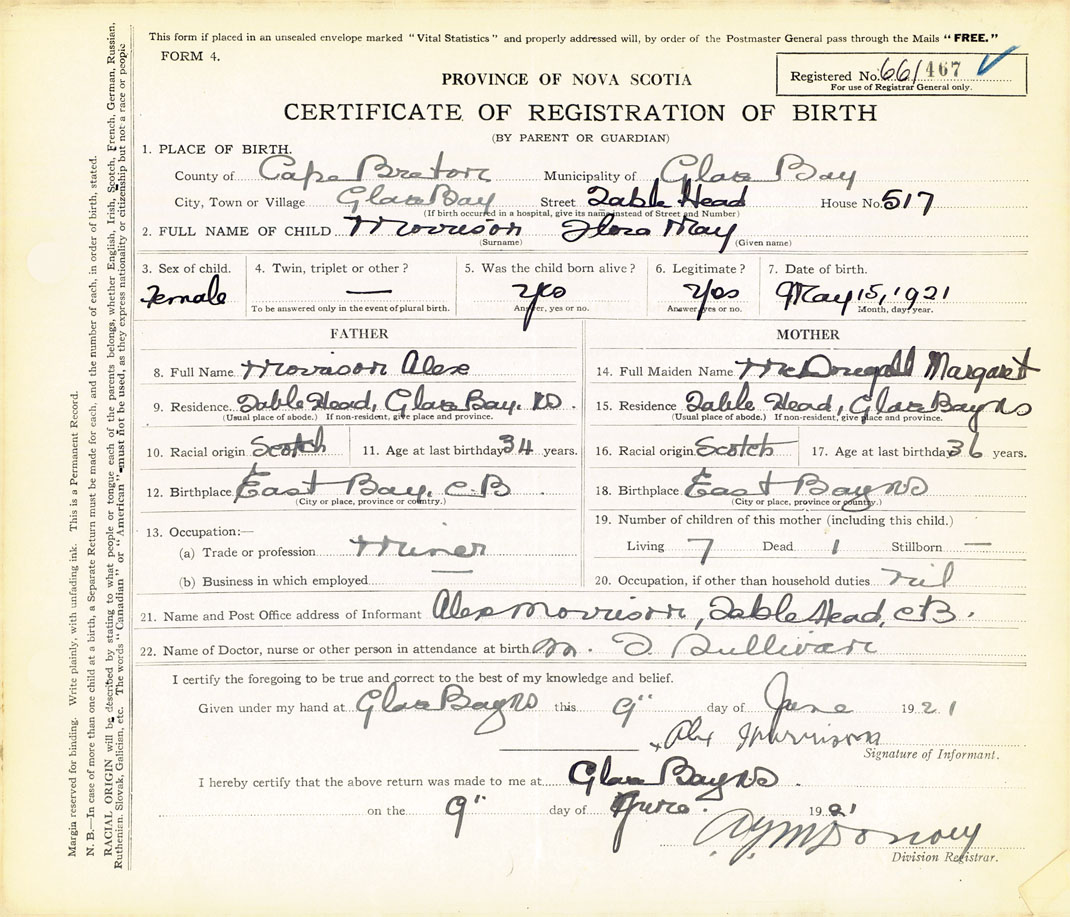 This form if placed in an unsealed envelope marked "Vital Statistics" and properly addressed will, by order of the Postmaster General pass through the Mails "FREE."
FORM 4.
Registered No. 661 467
For use of Registrar General only.
PROVINCE OF NOVA SCOTIA
CERTIFICATE OF REGISTRATION OF BIRTH
(BY PARENT OR GUARDIAN)
1. PLACE OF BIRTH.
County of Cape Breton Municipality of Glace Bay
City, Town or Village Glace Bay Street Table Head House No. 517
(If birth occurred in a hospital, give its name instead of Street and Number)
2. FULL NAME OF CHILD Morrison Flora May
(Surname) (Given name)
3. Sex of child. 4. Twin, triplet or other? 5. Was the child born alive? 6. Legitimate? 7. Date of birth.
Female — Yes Yes May 15, 1921
To be answered only in the event of plural birth. Answer, yes or no. Answer, yes or no. Month, day, year.
FATHER MOTHER
8. Full Name Morrison Alex 14. Full Maiden Name McDougall Margaret
9. Residence Table Head, Glace Bay. NS 15. Residence Table Head, Glace Bay NS
(Usual place of abode.) If non-resident, give place and province. (Usual place of abode.) If non-resident, give place and province.
10. Racial origin Scotch 11. Age at last birthday 34 years. 16. Racial origin Scotch 17. Age at last birthday 36 years.
12. Birthplace East Bay. C.B 18. Birthplace East Bay NS
(City or place, province or country.) (City or place, province or country.)
13. Occupation:— 19. Number of children of this mother (including this child.)
(a) Trade or profession Miner Living 7 Dead 1 Stillborn —
(b) Business in which employed — 20. Occupation, if other than household duties nil
21. Name and Post Office address of Informant Alex Morrison, Table Head, C.B.
22. Name of Doctor, nurse or other person in attendance at birth M. D. Sullivan
I certify the foregoing to be true and correct to the best of my knowledge and belief.
Given under my hand at Glace Bay NS this 9" day of June 1921
x Alex Morrison
Signature of Informant.
I hereby certify that the above return was made to me at Glace Bay NS.
on the 9" day of June. 1921
Division Registrar.
Margin reserved for binding. Write plainly, with unfading ink. This is a Permanent Record.
N. B.—In case of more than one child at a birth, a Separate Return must be made for each, and the number of each, in order of birth, stated.
RACIAL ORIGIN will be described by stating to what people or tongue each of the parents belongs, whether English, Irish, Scotch, French, German, Russian,
Ruthenian, Slovak, Galician, etc. The words "Canadian" or "American" must not be used, as they express nationality or citizenship but not a race or people